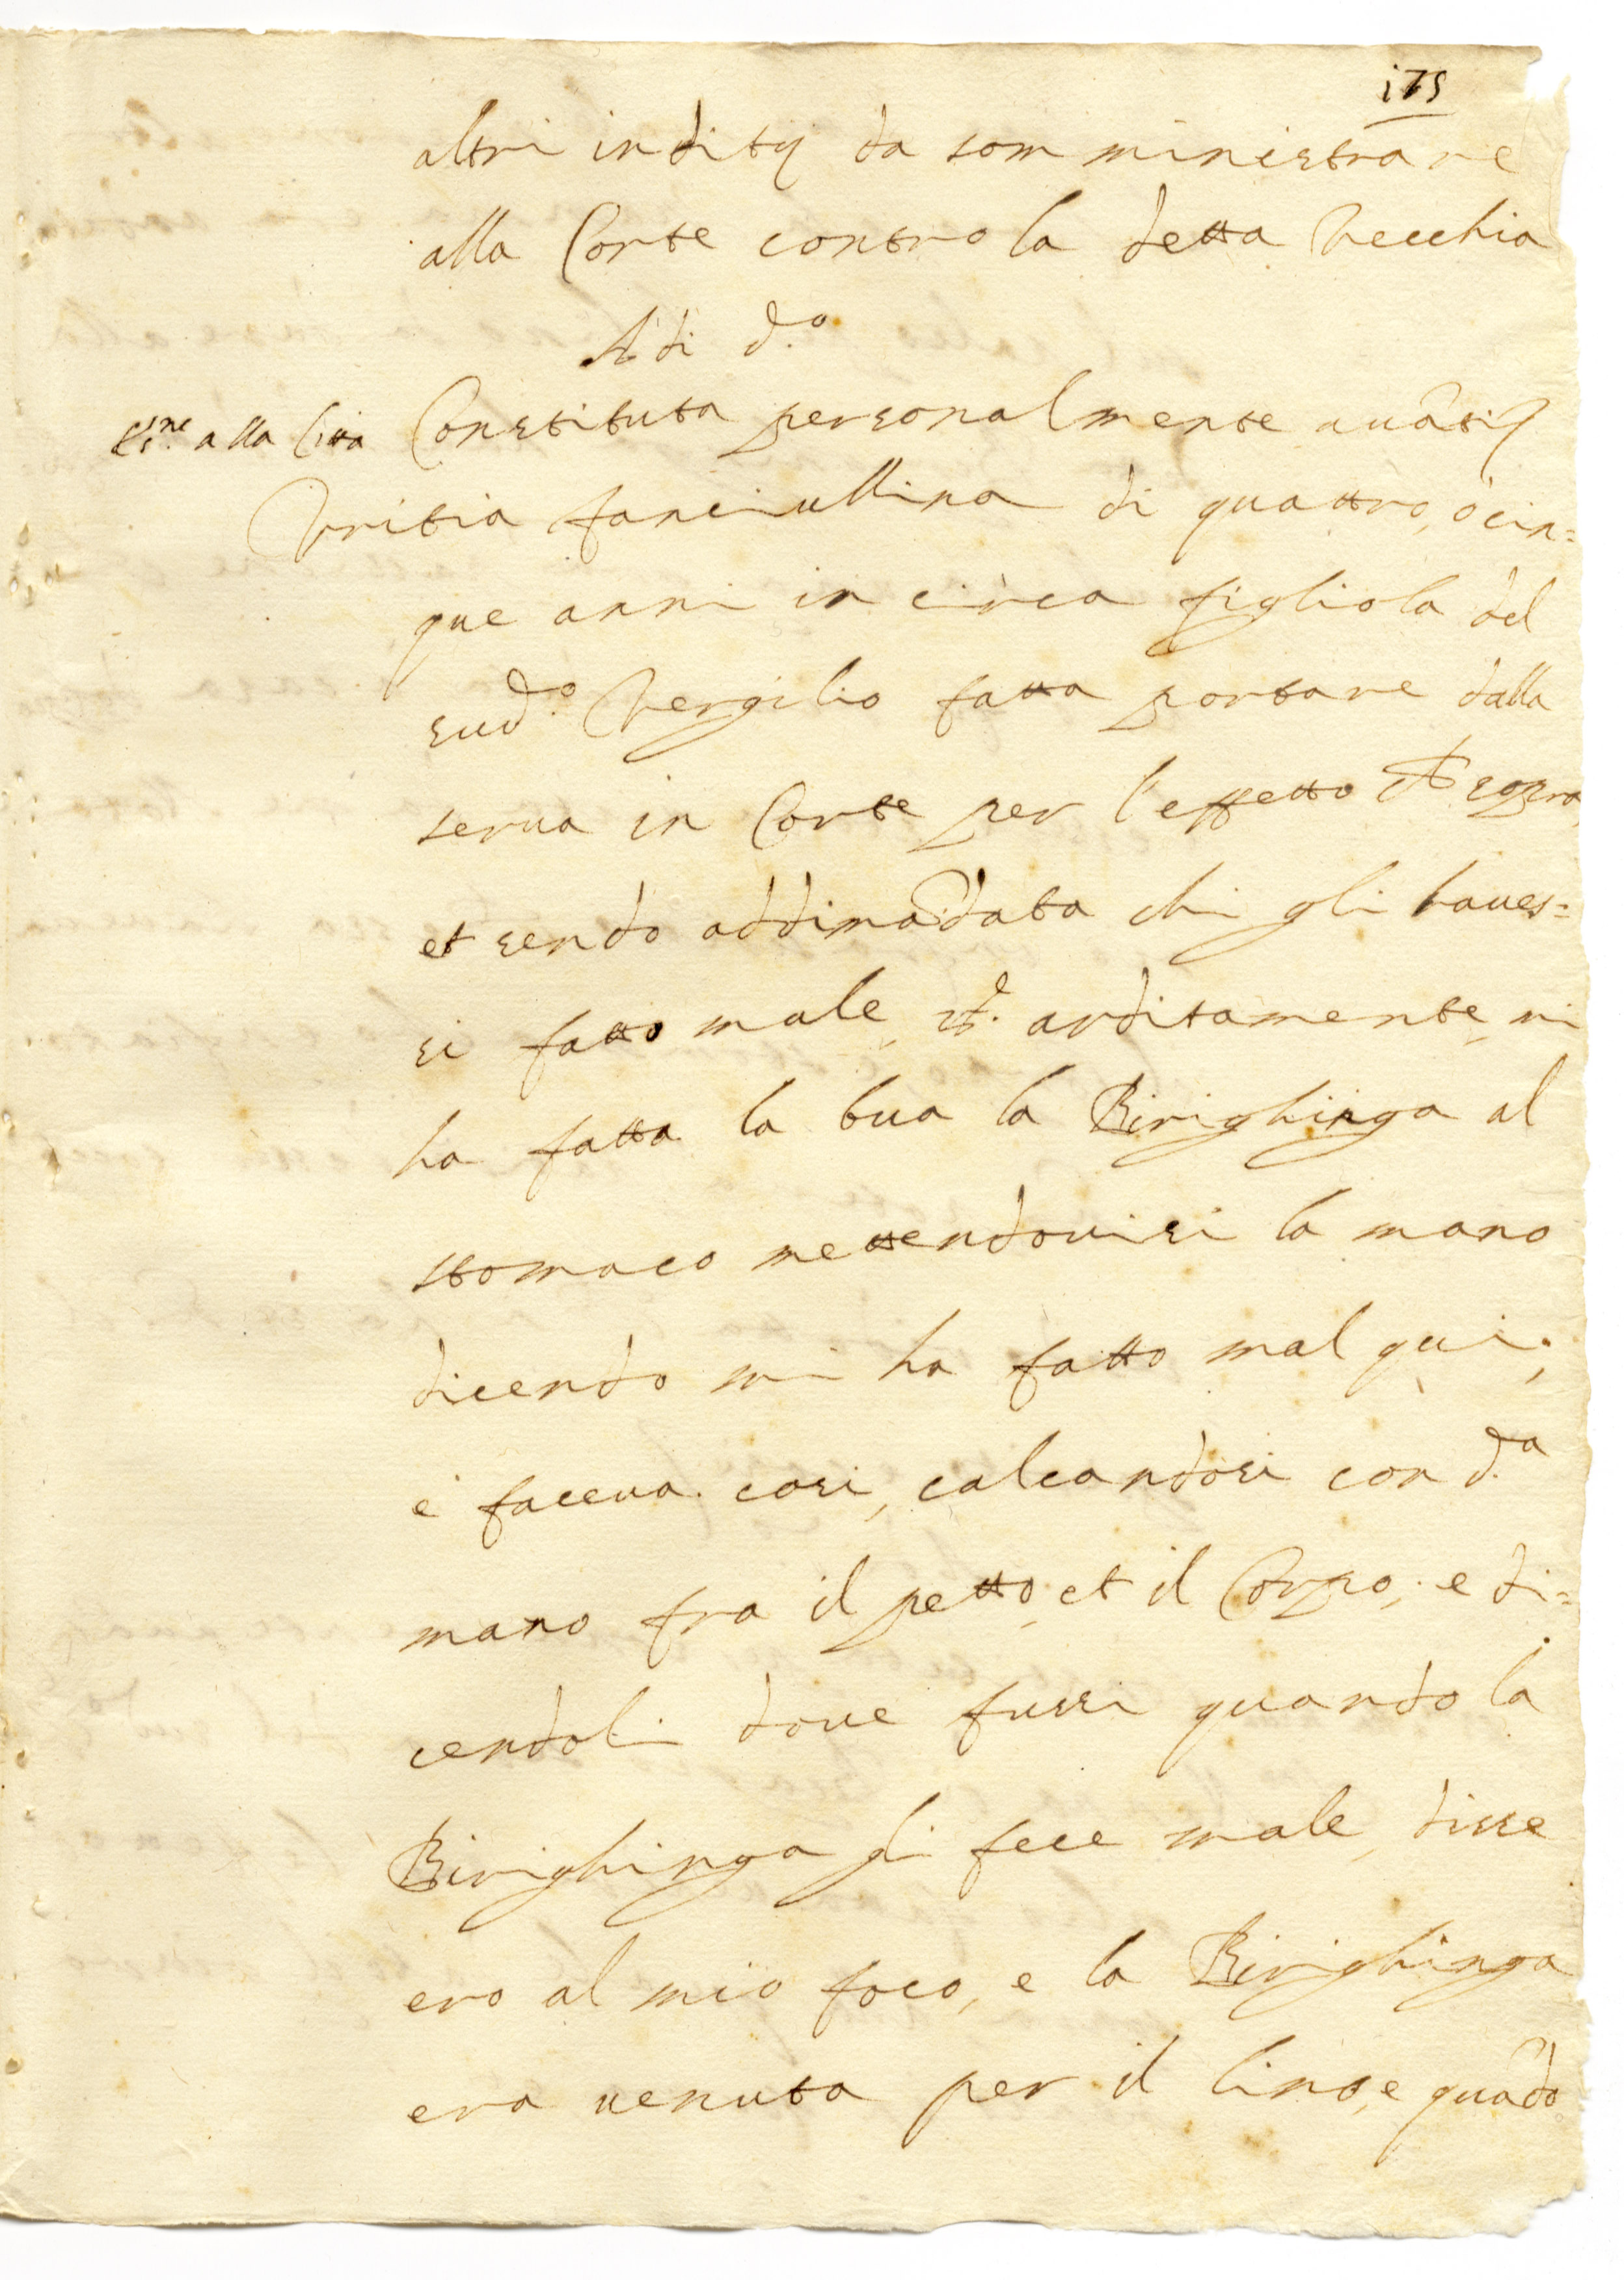 175
altri inditij da somministrare
alla Corte contro la detta Vecchia
A di d.o
alla Citta Constituta personalmente auãti
Vritia fanciullina di quattro, ò cin=
que anni in circa figliola del
sud.o Vergilio fatta portare dalla
serua in Corte per l'effetto sopra,
et sendo addimãdata chi gli haues=
si fatto male, arditamente, mi
ha fatta la bua la Birighinga al
stomaco mettendouisi la mano
dicendo mi ha fatto mal qui;
e faceua cosi, calcandosi con d.a
mano fra il petto, et il Corpo; e di=
cendoli doue fussi quando la
Birighinga gli fece male, disse
ero al mio foco, e la Birighinga
era uenuta per il lino, e quãdo